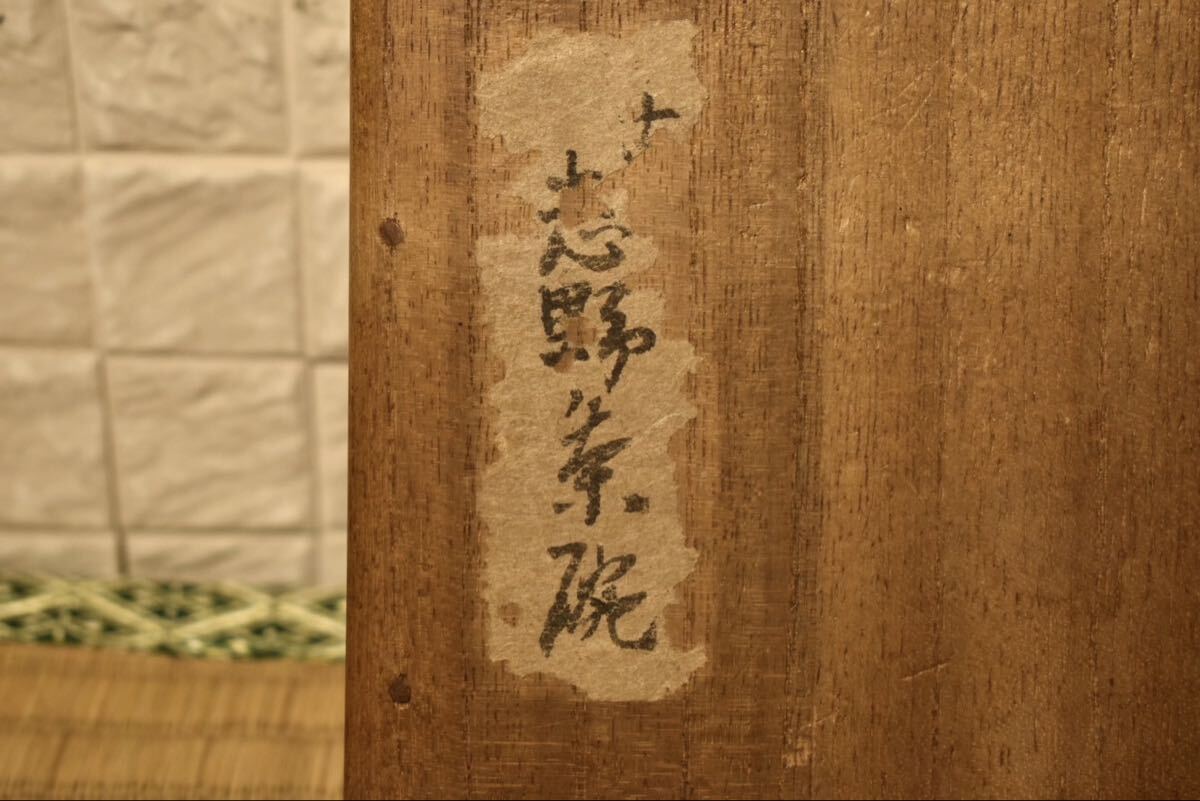 志野茶碗